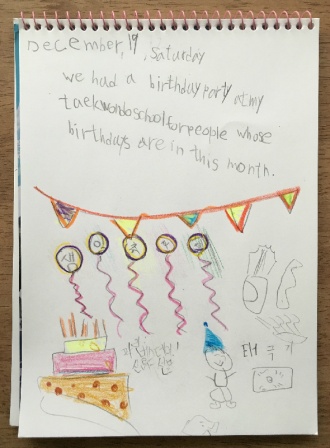 December, 19, Saturday
we had a birthday party at my
taekwondo school for people whose
birthdays are in this month.
생 일 축